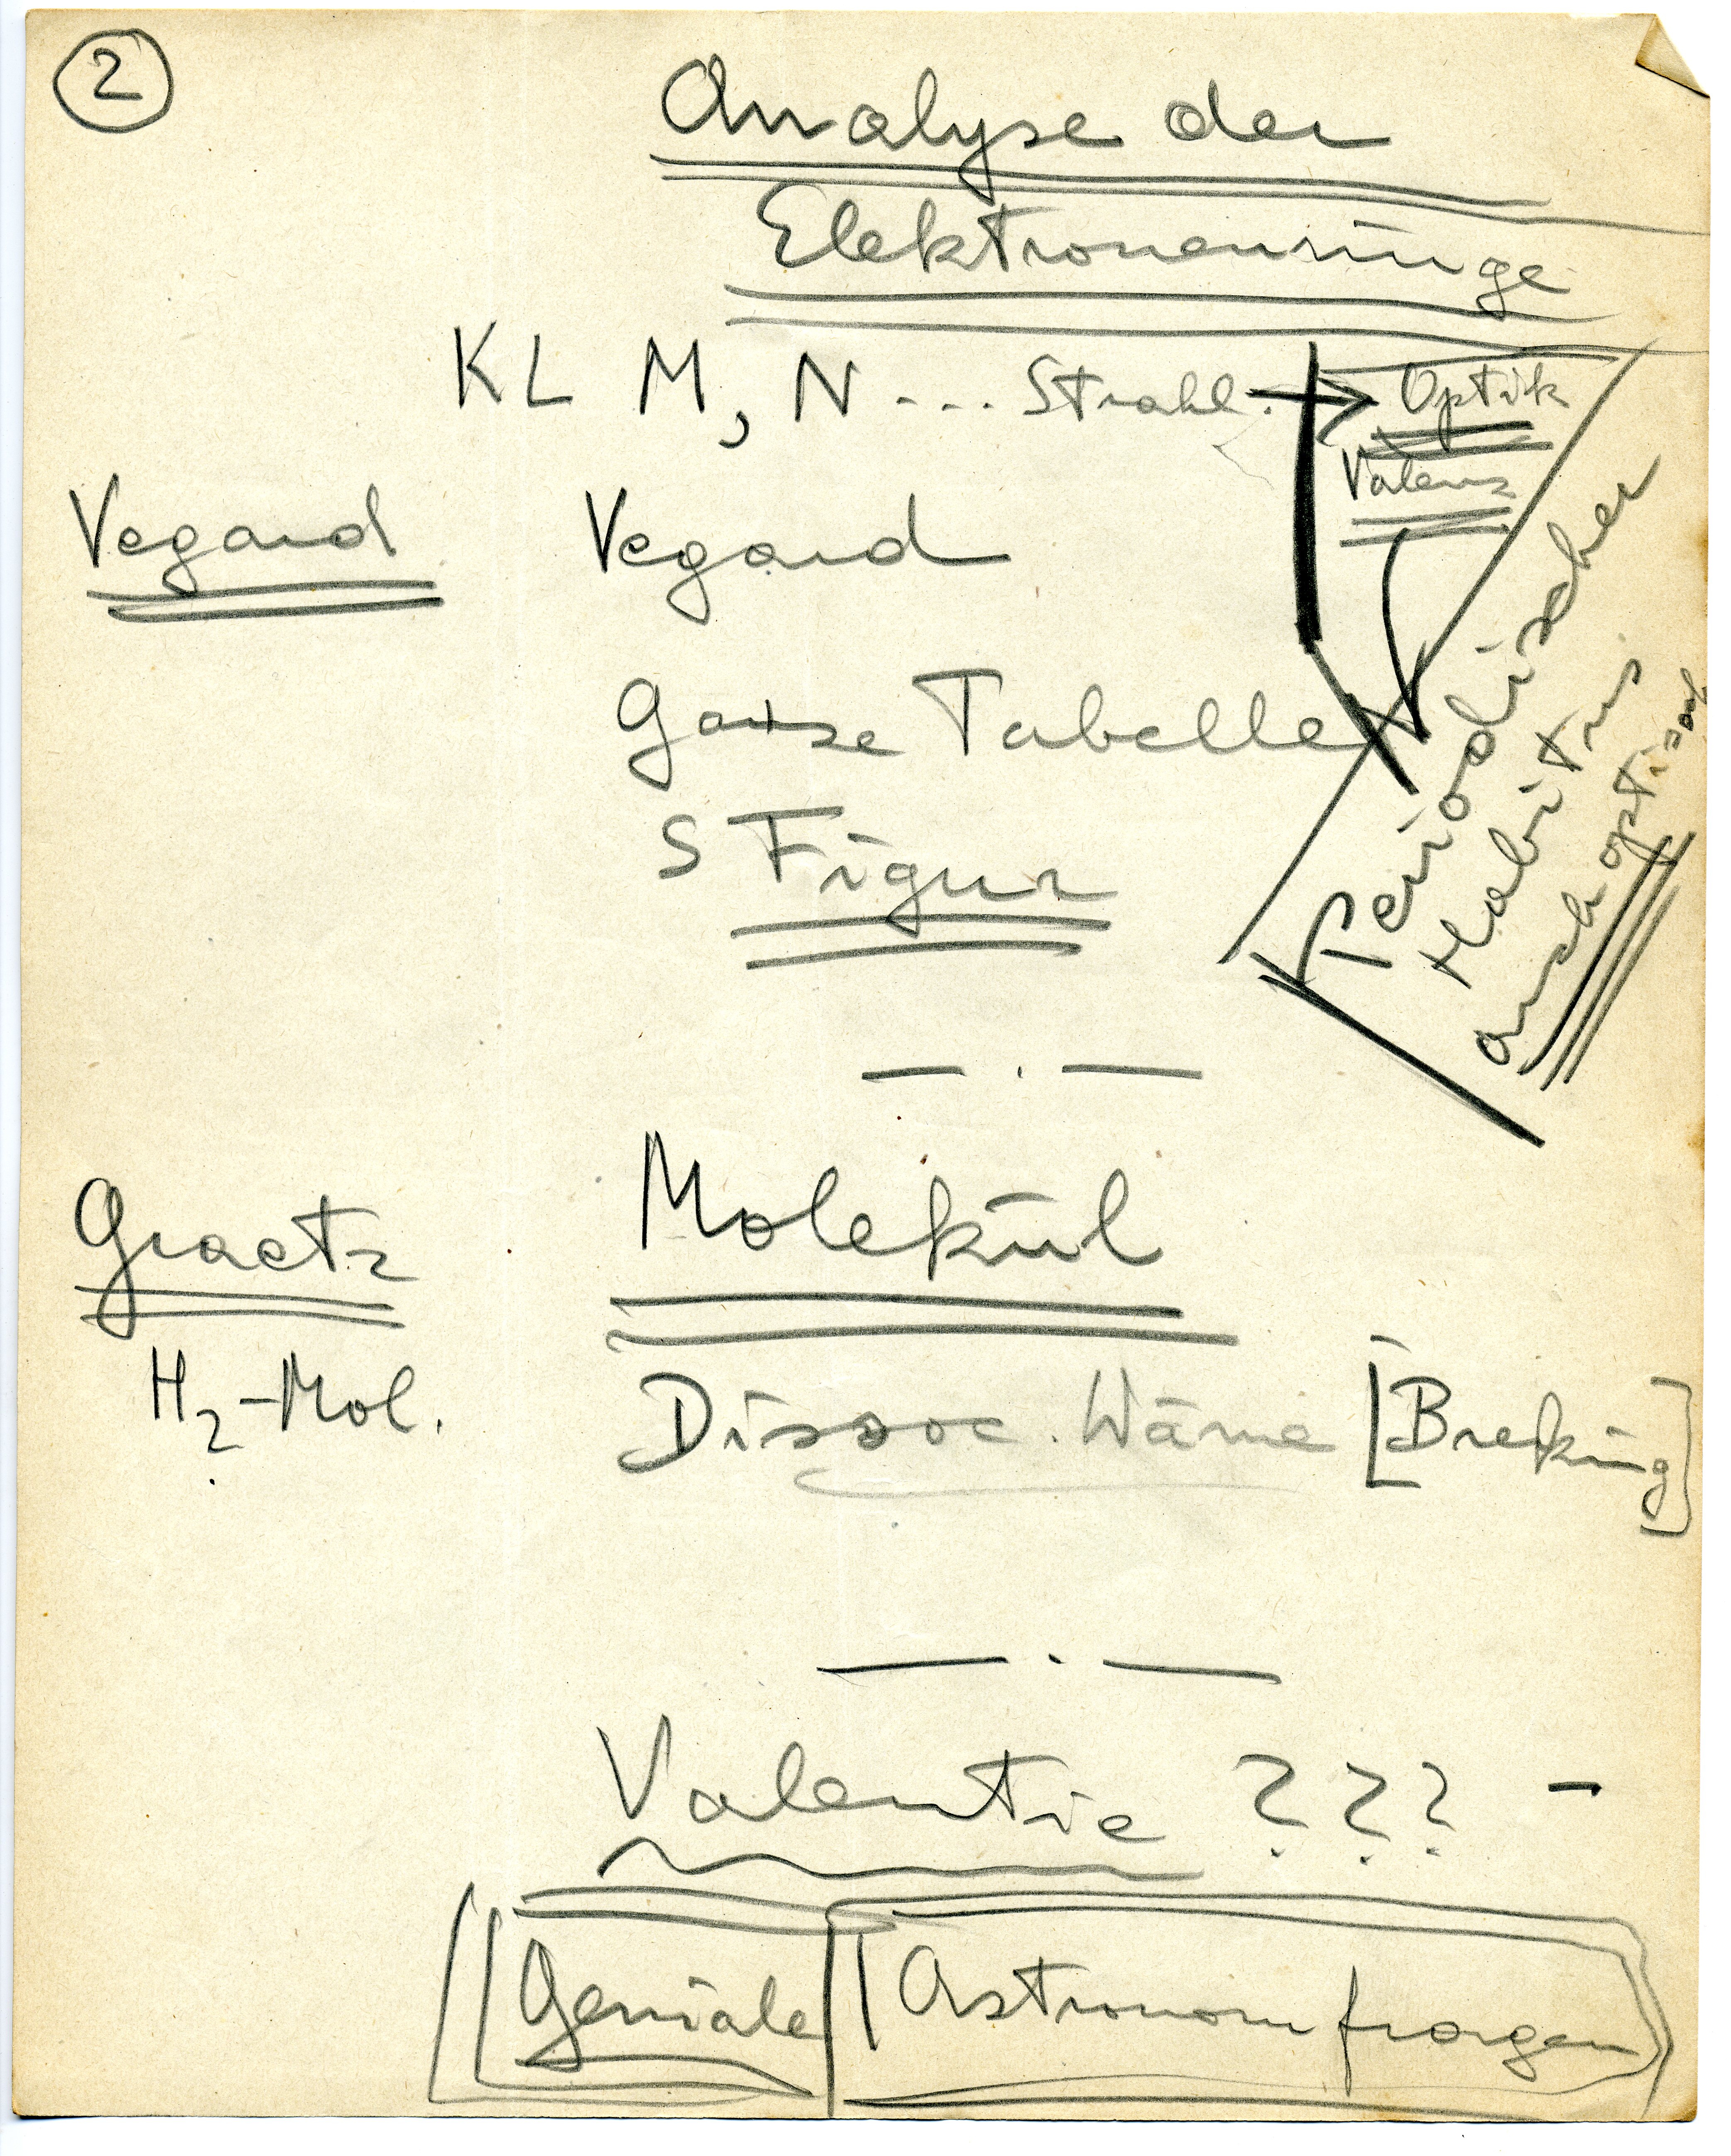 2
Analyse der
Elektronenringe
K L M, N --- Strahl. → Optik
Valenz
Vegard Vegard
Ganze Tabelle
S Figur
Periodischer
Habitus
auch optisch
— . —
Graetz Molekül
H2-Mol. Dissoc. Wärme
— . —
Valentie ??? —
Geniale Astronom fragen